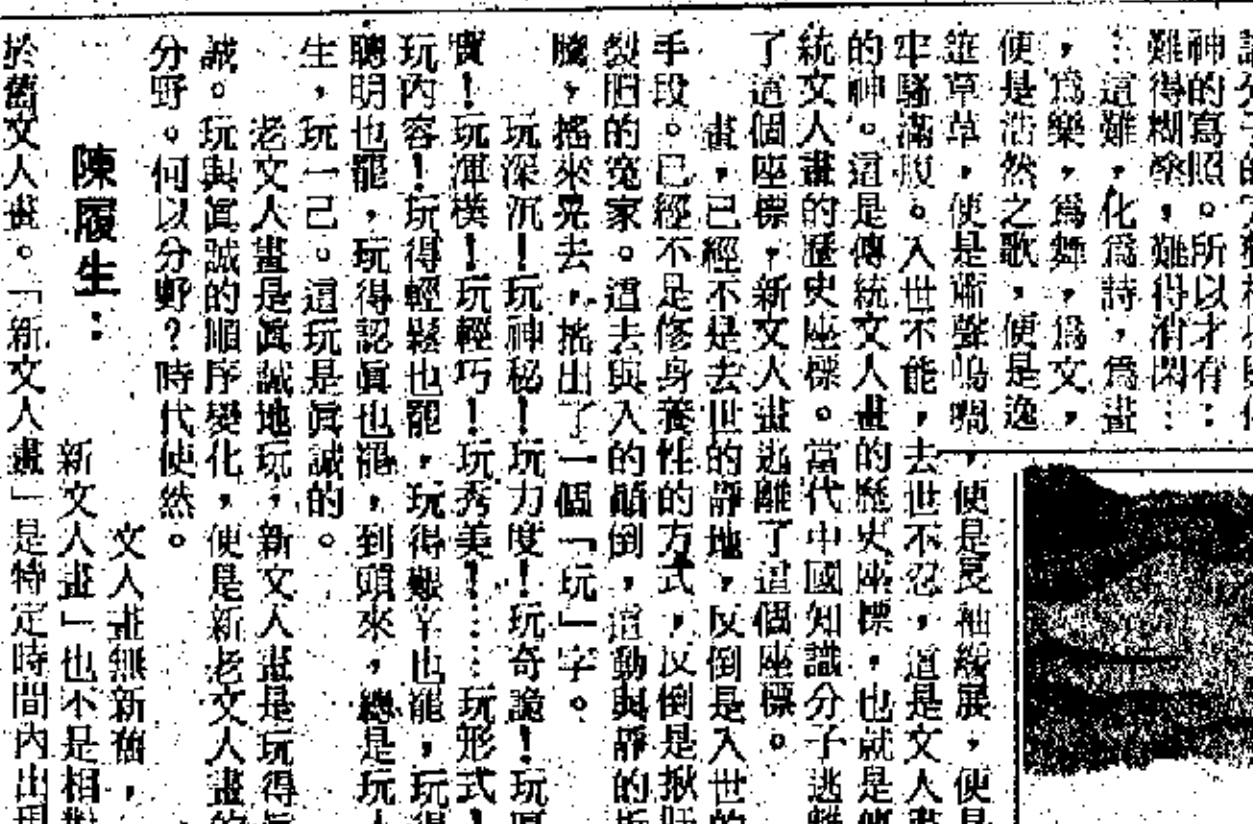 神的寫照。所以才有:
難得糊塗,難得清閑…
…這難,化爲詩,爲畫
,爲樂,爲舞,爲文,
便是浩然之歌,便是逸
筆草草,便是嘶聲嗚咽,便是長袖緩展,便是
牢騷滿腹。入世不能,去世不忍,這是文人畫
的神。這是傳統文人畫的歷史座標,也就是傳
統文人畫的歷史座標。當代中國知識分子逃離
了這個座標,新文人畫逃離了這個座標。
畫,已經不是去世的靜地,反倒是入世的
手段。已經不是修身養性的方式,反倒是揪
裂阳的冤家。這去與入的顛倒,這動與靜的
騰,搖來晃去,搖出了一個「玩」字。
玩深沉!玩神秘!玩力度!玩奇詭!玩
實!玩渾樸!玩輕巧!玩秀美!……玩形式!
玩內容!玩得輕鬆也罷,玩得艱辛也罷,玩得
聰明也罷,玩得認眞也罷,到頭來,總是玩人
生,玩一己。這玩是眞誠的。
老文人畫是眞誠地玩,新文人畫是玩得眞
誠。玩與眞誠的順序變化,便是新老文人畫的
分野。何以分野?時代使然。
陳履生:
文人畫無新舊,
新文人畫」也不是相對
於舊文人畫。「新文人畫」是特定時間內出現